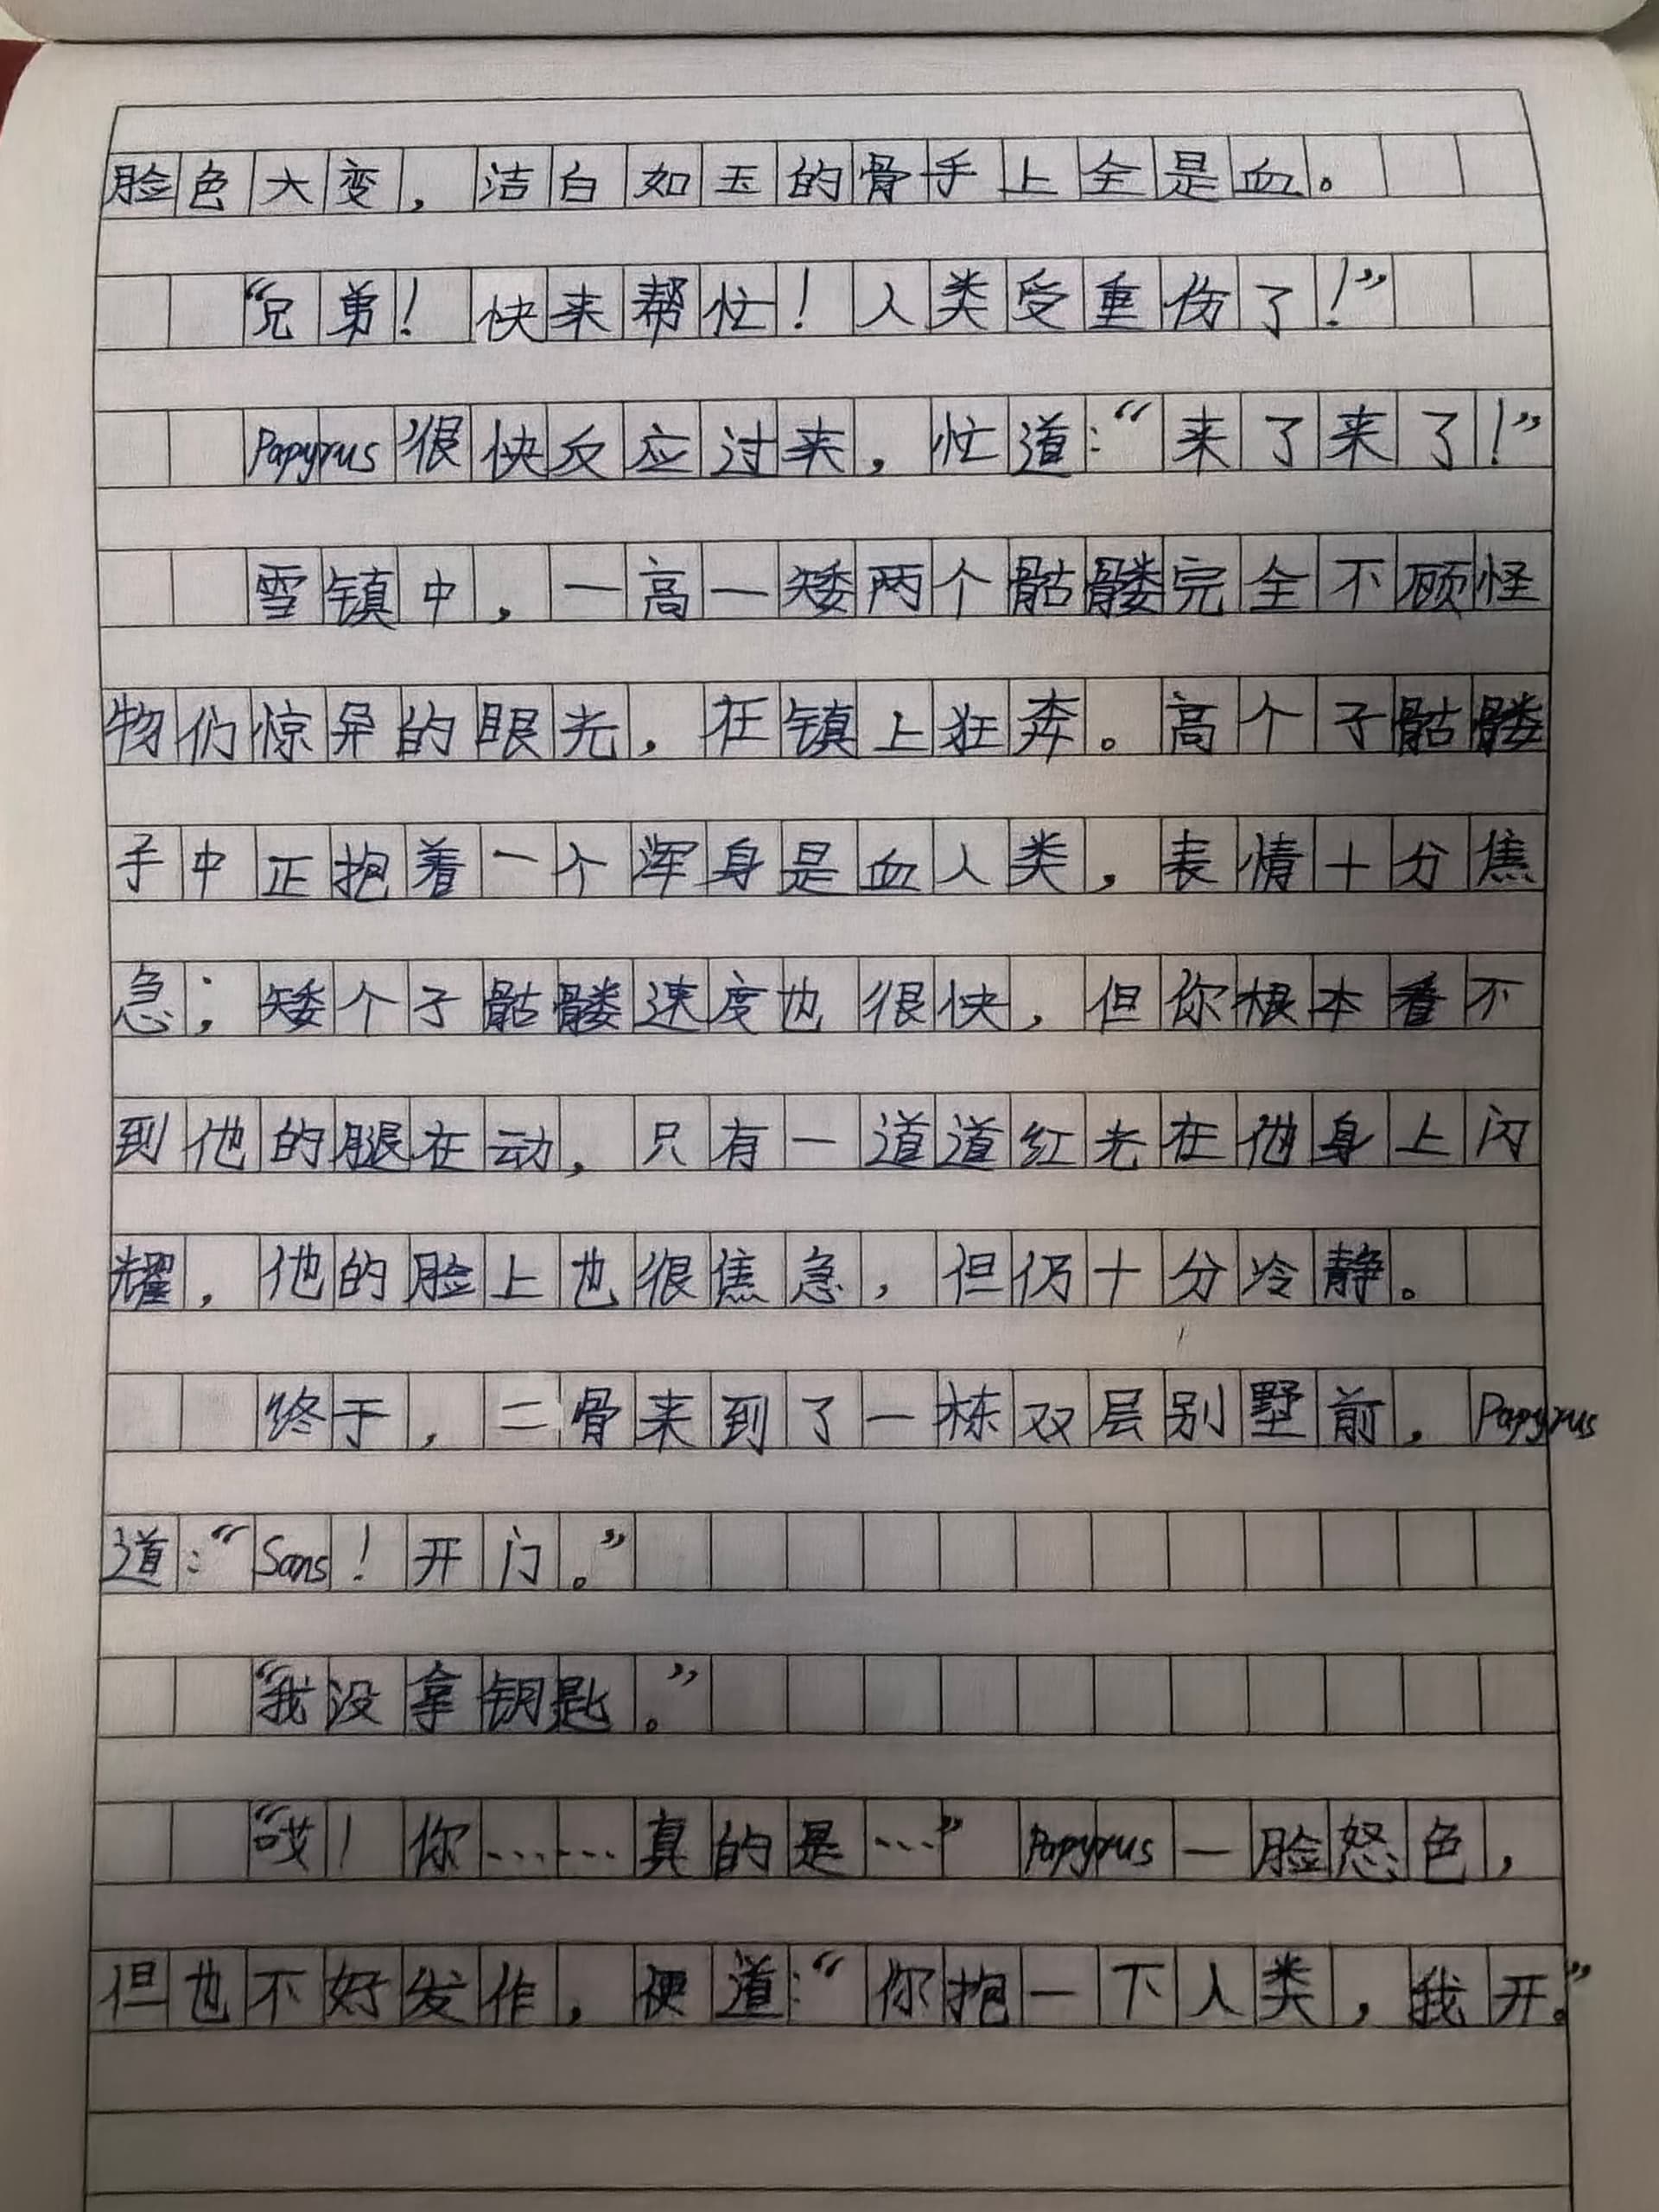 脸色大变，洁白如玉的骨手上全是血。
“兄弟！快来帮忙！人类受重伤了！”
Papyrus很快反应过来，忙道：“来了来了！”
雪镇中，一高一矮两个骷髅完全不顾怪
物们惊异的眼光，在镇上狂奔。高个子骷髅
手中正抱着一个浑身是血人类，表情十分焦
急；矮个子骷髅速度也很快，但你根本看不
到他的腿在动，只有一道道红光在他身上闪
耀，他的脸上也很焦急，但仍十分冷静。
终于，二骨来到了一栋双层别墅前，Papyrus
道：“Sans！开门。”
“我没拿钥匙。”
“哎！你……真的是…”Papyrus一脸怒色，
但也不好发作，便道：“你抱一下人类，我开。”